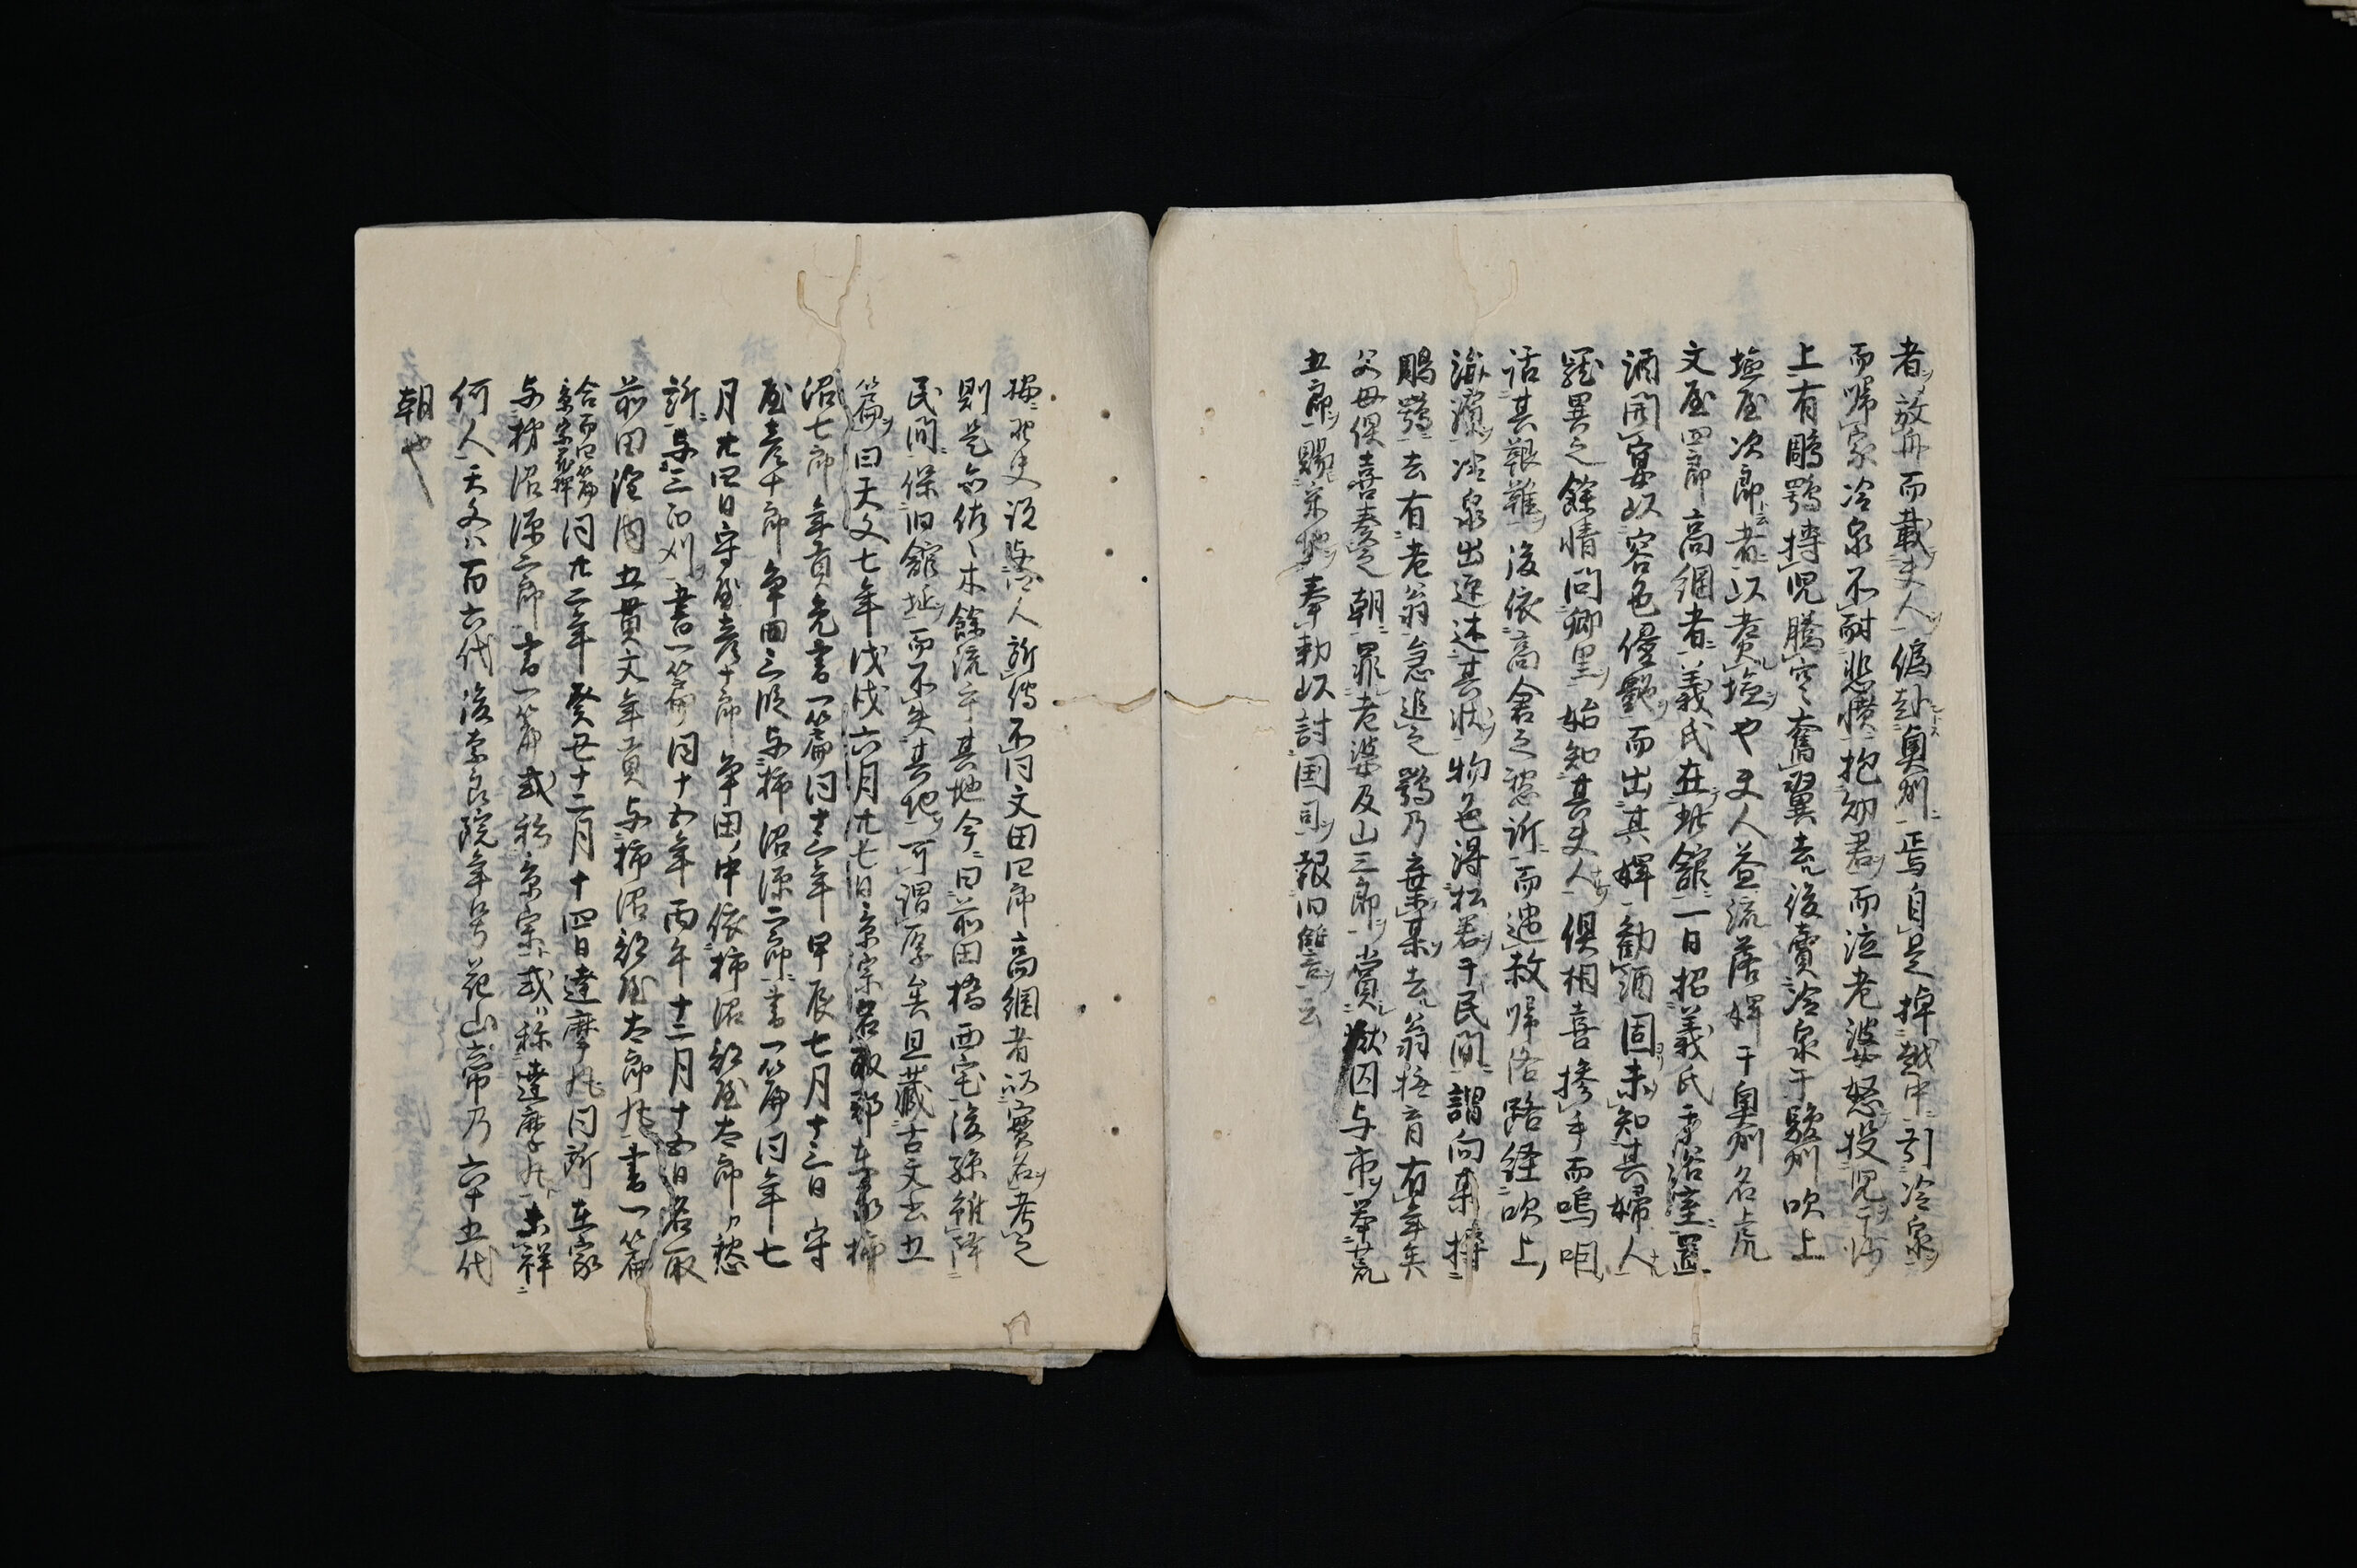 者放舟而載夫人偽赴奥州焉自是掉越中引冷泉
而帰家冷泉不耐悲憤抱幼君而泣老婆怒投児于
上有鵰鶚搏児騰空奮翼去後賣冷泉于駿州吹上
塩屋次郎者以煮塩也夫人益流落婢于奥州名
文屋四郎高綱者義氏在此舘一日招義氏浴室置
酒開宴以容色優艶而出其婢勧酒固未知其婦人
異之餘情問郷里始知其夫人倶相喜携手而嗚咽
話其艱難後依高倉之愁訴而遇赦帰洛路経吹上
海濱冷泉出迎述其状物色得松君于民間謂向棄搏
鵰鶚去有老翁急追之鶚乃棄某去翁撫育有年矣
父母倶喜奏之朝罪老婆及山三郎賞獄囚与市挙荒
五郎賜采地奉勅以討国司報旧讐云
説与人所傳不同文田四郎高綱者以實名考之
則是佐々木餘流乎其地今曰前田橋西宅後孫雖降
民間保旧舘址而不失其地可謂厚矣且蔵古文書五
篇曰天文七年戊戌六月廿七日景宗名取郡
沼七郎年貢免書一篇同十三年甲辰七月十三日守
屋彦十郎年田三段与柿沼源二郎書一篇同年七
月廿四日守屋彦十郎年田中依柿沼新屋太郎愁
訴与三百刈書一篇同十五年丙午十二月十五日名取
前田窪内五貫文年貢与柿沼新屋太郎丸書一篇
合而四篇景宗花押同廿二年癸丑十二月十四日達摩丸同所在家
与柿沼源三郎書一篇或称景宗或称達摩丸未詳
何人天文百六代後奈良院年号花山帝乃六十五代
朝也